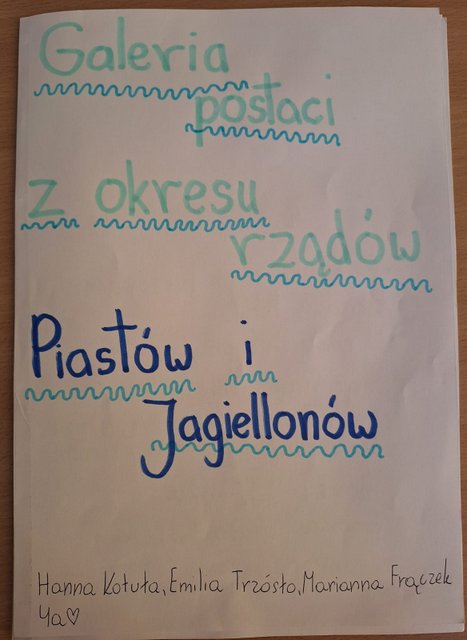 Galeria
postaci
z okresu
rządów
Piastów i
Jagiellonów
Hanna Kotuła, Emilia Trzósło, Marianna Frączek
4a♡